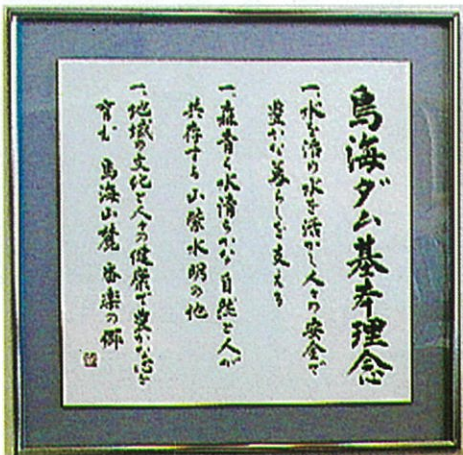 鳥海ダム基本理念
一、水を治め水を活かし人々の安全で
豊かな暮らしを支える
一、森青く水清らかな自然と人が
共存する 山紫水明の地
一、地域の文化と人々の健康で豊かな心を
育む 鳥海山麓 番楽の郷